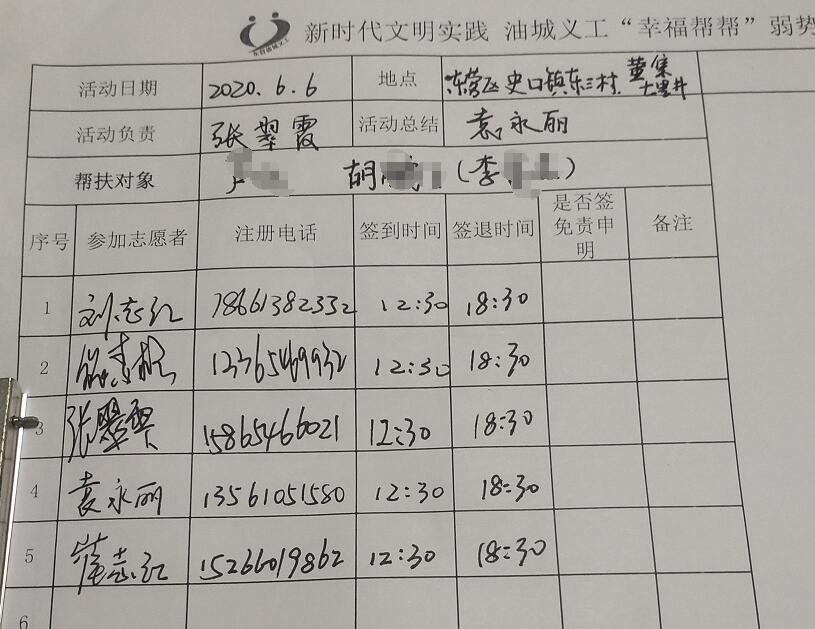 新时代文明实践 油城义工“幸福帮帮”弱势
活动日期 2020.6.6 地点 东营区史口镇东三村 董集
活动负责 张翠霞 活动总结 袁永丽
帮扶对象 胡 (李 )
序号 参加志愿者 注册电话 签到时间 签退时间 是否签免责申明 备注
1 刘志红 18661382332 12:30 18:30
2 12:30 18:30
3 张翠霞 15865466021 12:30 18:30
4 袁永丽 13561051580 12:30 18:30
5 崔志红 15266019862 12:30 18:30
6